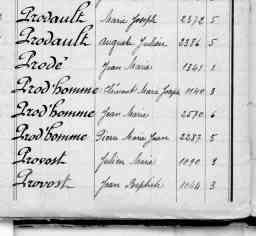 Prodault Marie Joseph 2372 5
Prodault Auguste Julien 2386 5
Prodé Jean Marie 1341 1
Prod'homme Clément Marie Joseph 1140 3
Prod'homme Jean Marie 2530 6
Prod'homme Pierre Marie Jean 2287 5
Provost Julien Marie 1090 3
Provost Jean Baptiste 1044 3